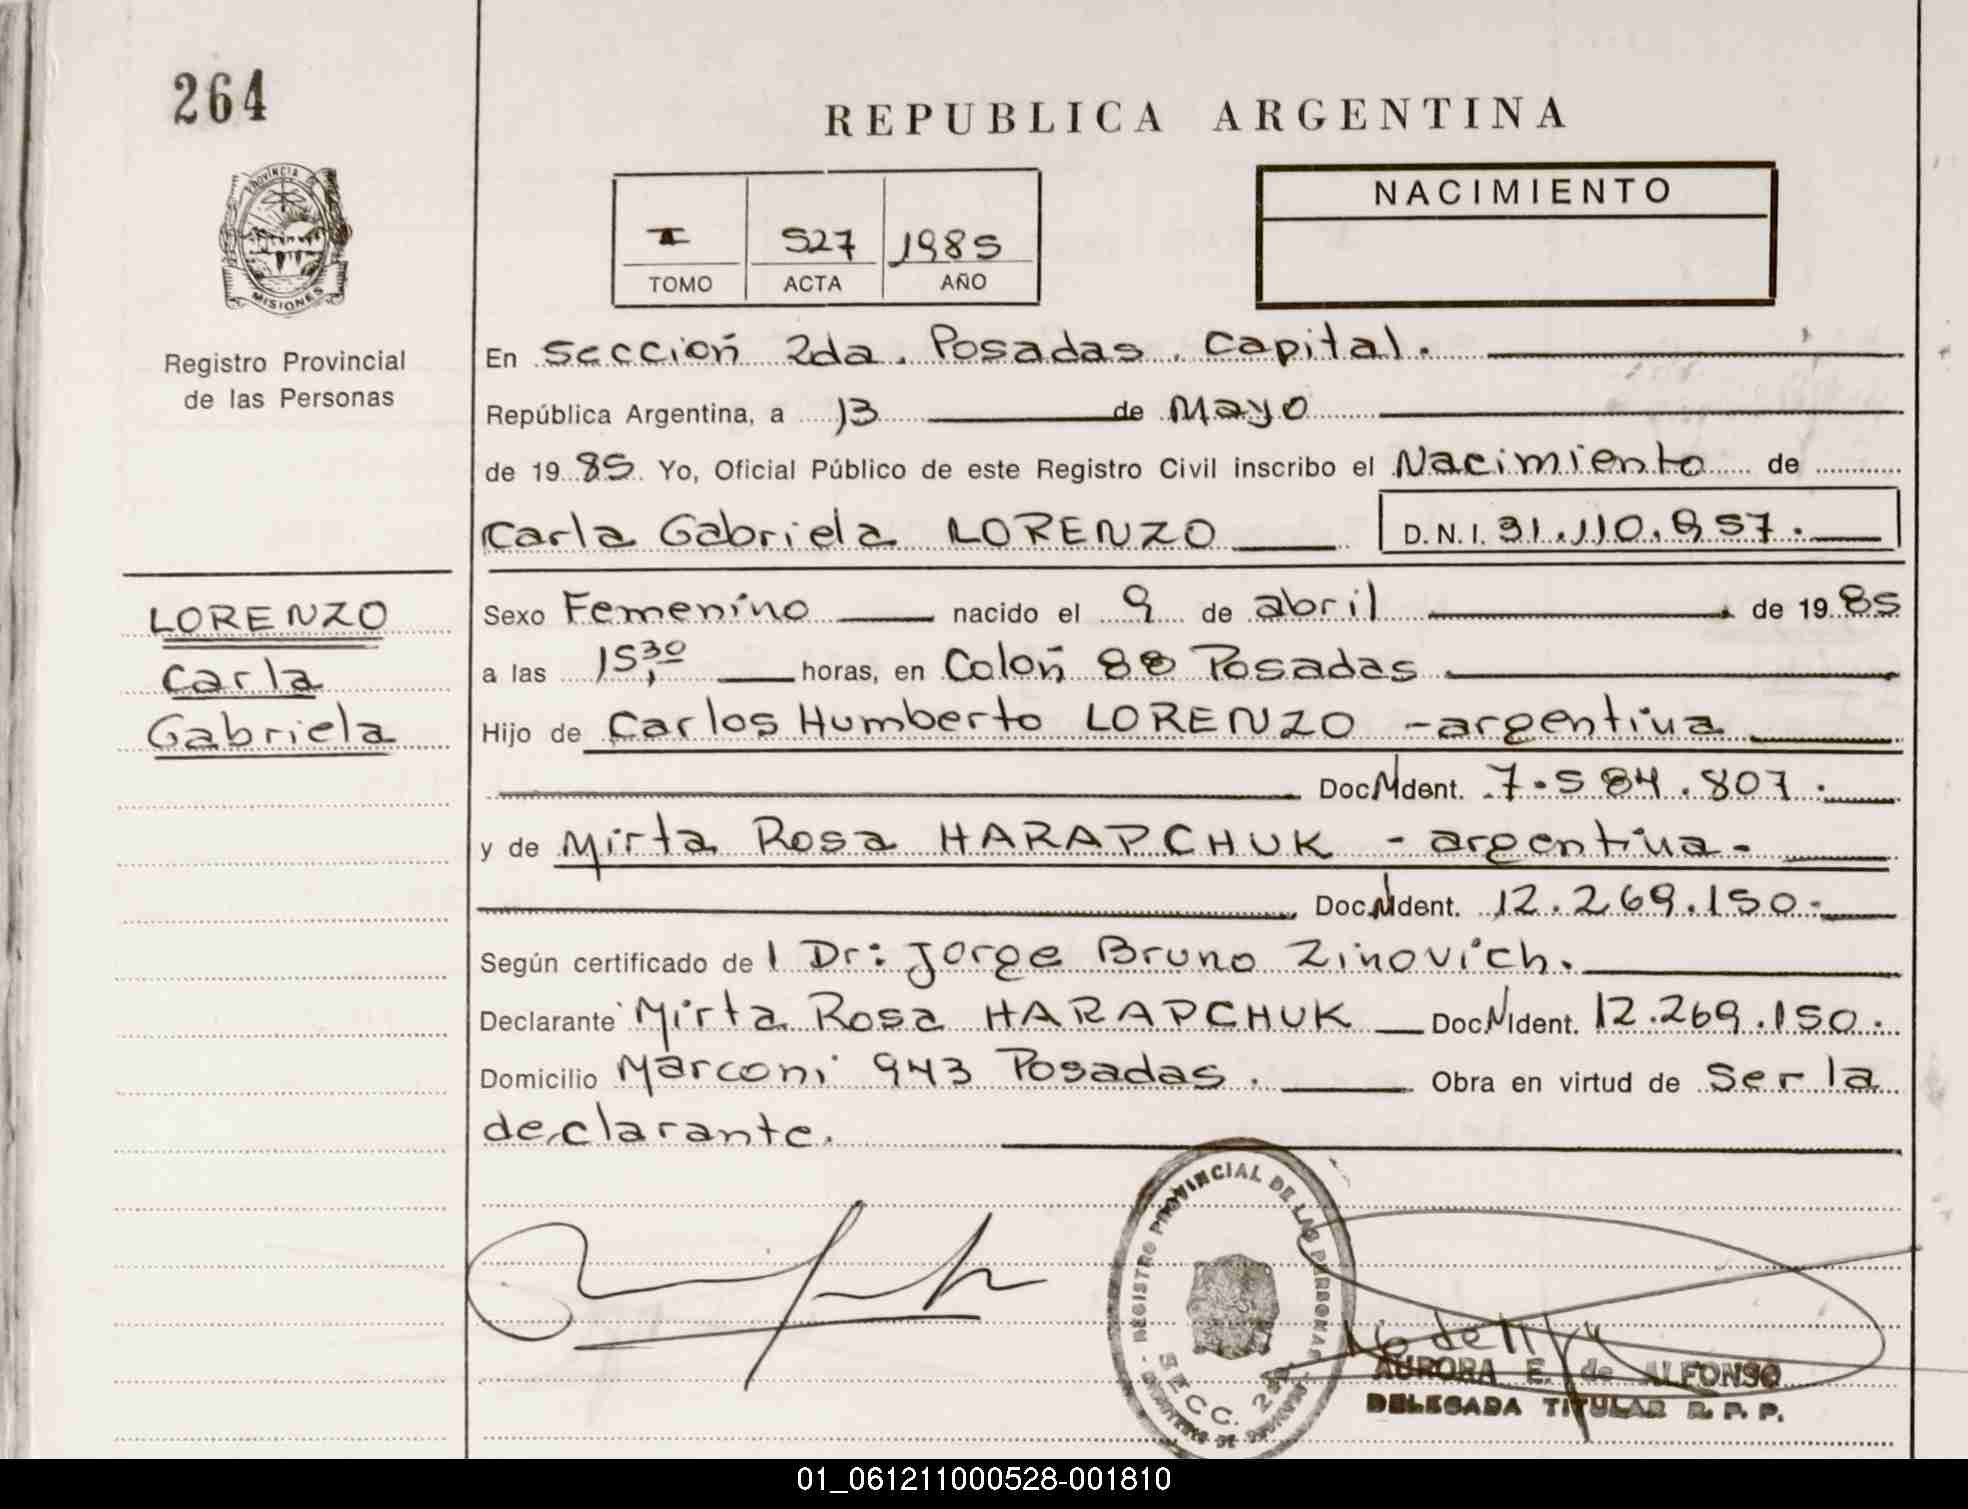 264
REPUBLICA ARGENTINA
PROVINCIA DE
MISIONES
Registro Provincial
de las Personas
I 527 1985
TOMO ACTA AÑO
NACIMIENTO
En Sección 2da. Posadas. Capital.
República Argentina, a 13 de Mayo
de 1985. Yo, Oficial Público de este Registro Civil inscribo el Nacimiento de
Carla Gabriela LORENZO D.N.I. 31.110.957.
LORENZO
Carla
Gabriela
Sexo Femenino nacido el 9 de abril de 1985
a las 15,30 horas, en Colón 88 Posadas
Hijo de Carlos Humberto LORENZO - argentina
Doc. Ident. 7.584.807.
y de Mirta Rosa HARAPCHUK - argentina -
Doc. Ident. 12.269.150.
Según certificado de l Dr: Jorge Bruno Zinovich.
Declarante Mirta Rosa HARAPCHUK Doc. Ident. 12.269.150.
Domicilio Marconi 943 Posadas. Obra en virtud de Ser la
declarante.
REGISTRO PROVINCIAL DE LAS PERSONAS
SECC. 2da.
AURORA E. de ALFONSO
DELEGADA TITULAR R. P. P.
01_061211000528-001810